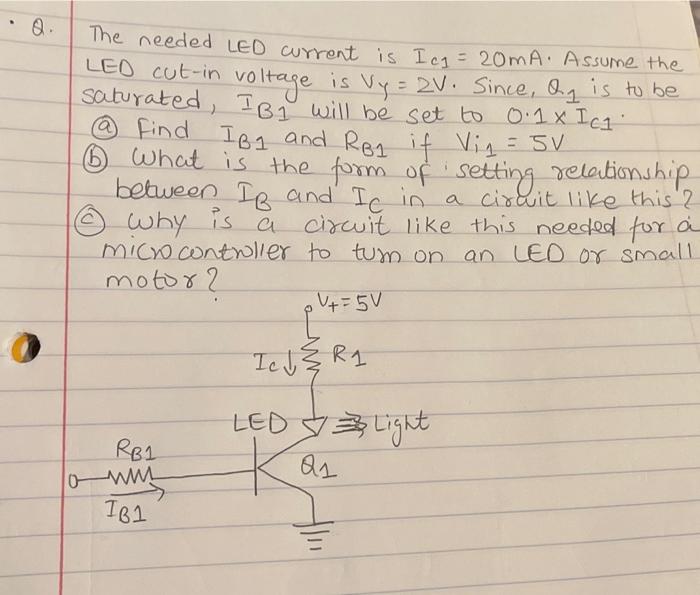 Q. The needed LED current is Ic1 = 20mA. Assume the
LED cut-in voltage is Vγ = 2V. Since, Q1 is to be
saturated, IB1 will be set to 0.1 x Ic1.
(a) Find IB1 and RB1 if Vi1 = 5V
(b) What is the form of setting relationship
between IB and Ic in a circuit like this?
(c) why is a circuit like this needed for a
microcontroller to turn on an LED or small
motor?
V+ = 5V
Ic↓ R1
LED Light
RB1
Q1
IB1